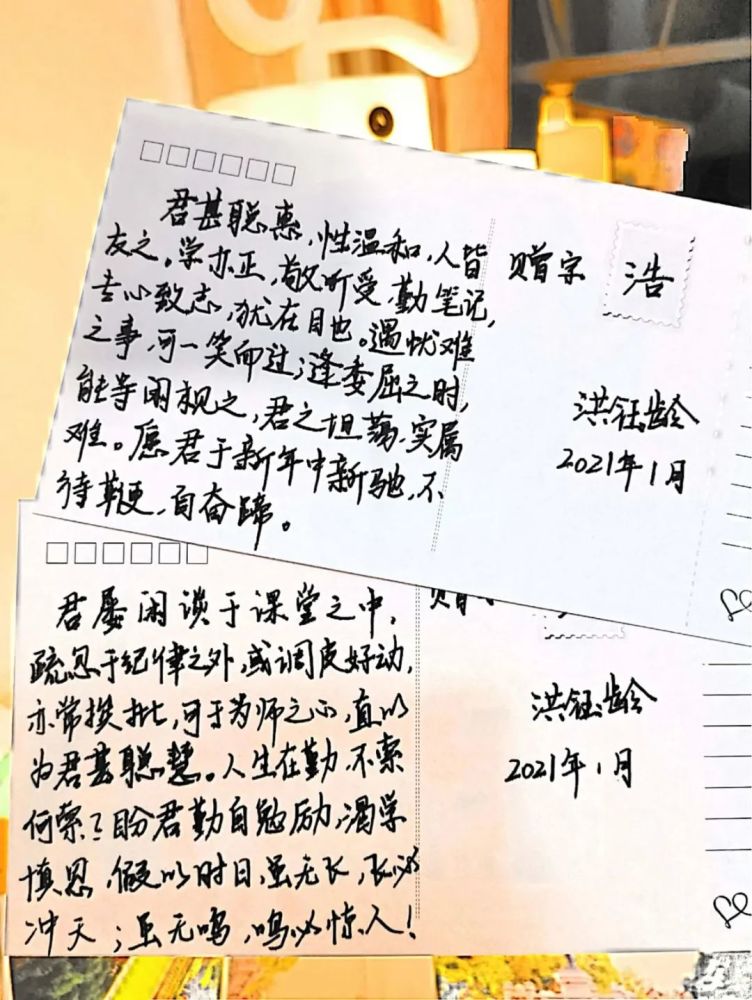 君甚聪惠,性温和,人皆
友之。学亦正,敬听受,勤笔记,
专心致志,犹在目也。遇忧难
之事,可一笑而过;逢委屈之时,
能等闲视之,君之坦荡,实属
难。愿君于新年中新驰,不
待鞭,自奋蹄。
赠宗 浩
洪钰龄
2021年1月
君屡闲谈于课堂之中,
疏忽于纪律之外,或调皮好动,
亦常挨批,可于为师之心,直以
为君甚聪慧。人生在勤,不索
何索?盼君勤自勉励,渴学
慎思,假以时日,虽无飞,飞必
冲天;虽无鸣,鸣必惊人!
洪钰龄
2021年1月